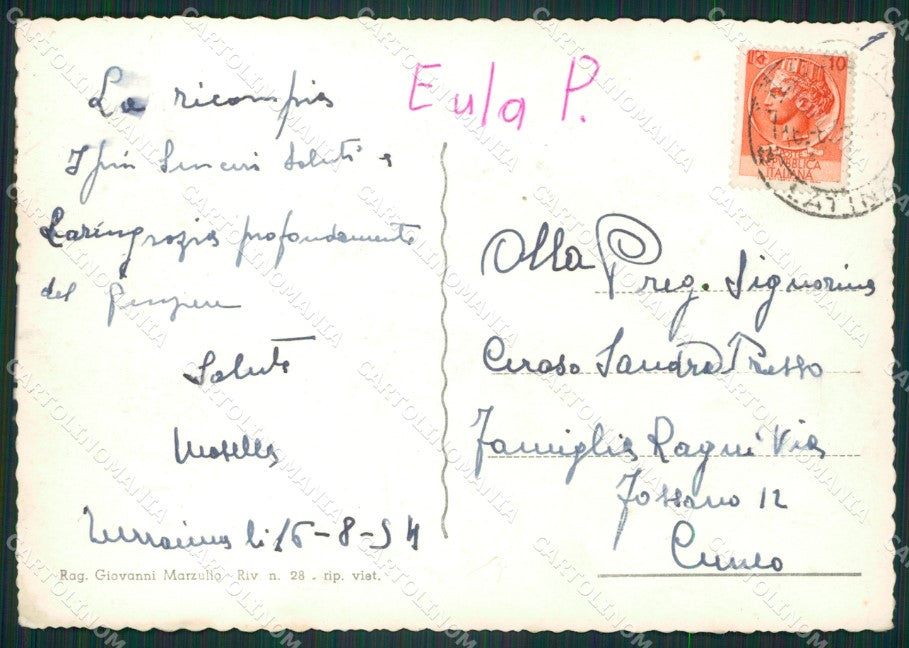 La ricompia
I piu Sinceri Saluti e
La ringrazia profondamente
del
Saluti
li 16-8-54
Rag. Giovanni Marzullo - Riv. n. 28 - rip. viet.
Eula P.
10
REPUBBLICA
ITALIANA
LATINA
Alla Preg. Signorina
Ceraso Sandra Presso
Famiglia Ragni Via
Fossano 12
Cuneo
CARTOLINOMANIA